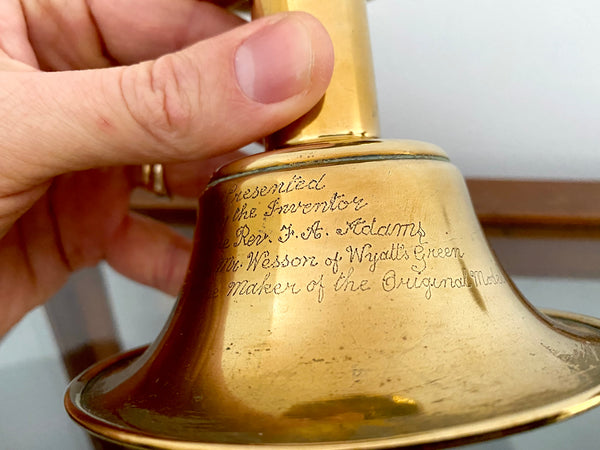 Presented
the Inventor
Rev. F. A. Adams
Mr. Wesson of Wyatt's Green
Maker of the Original Model